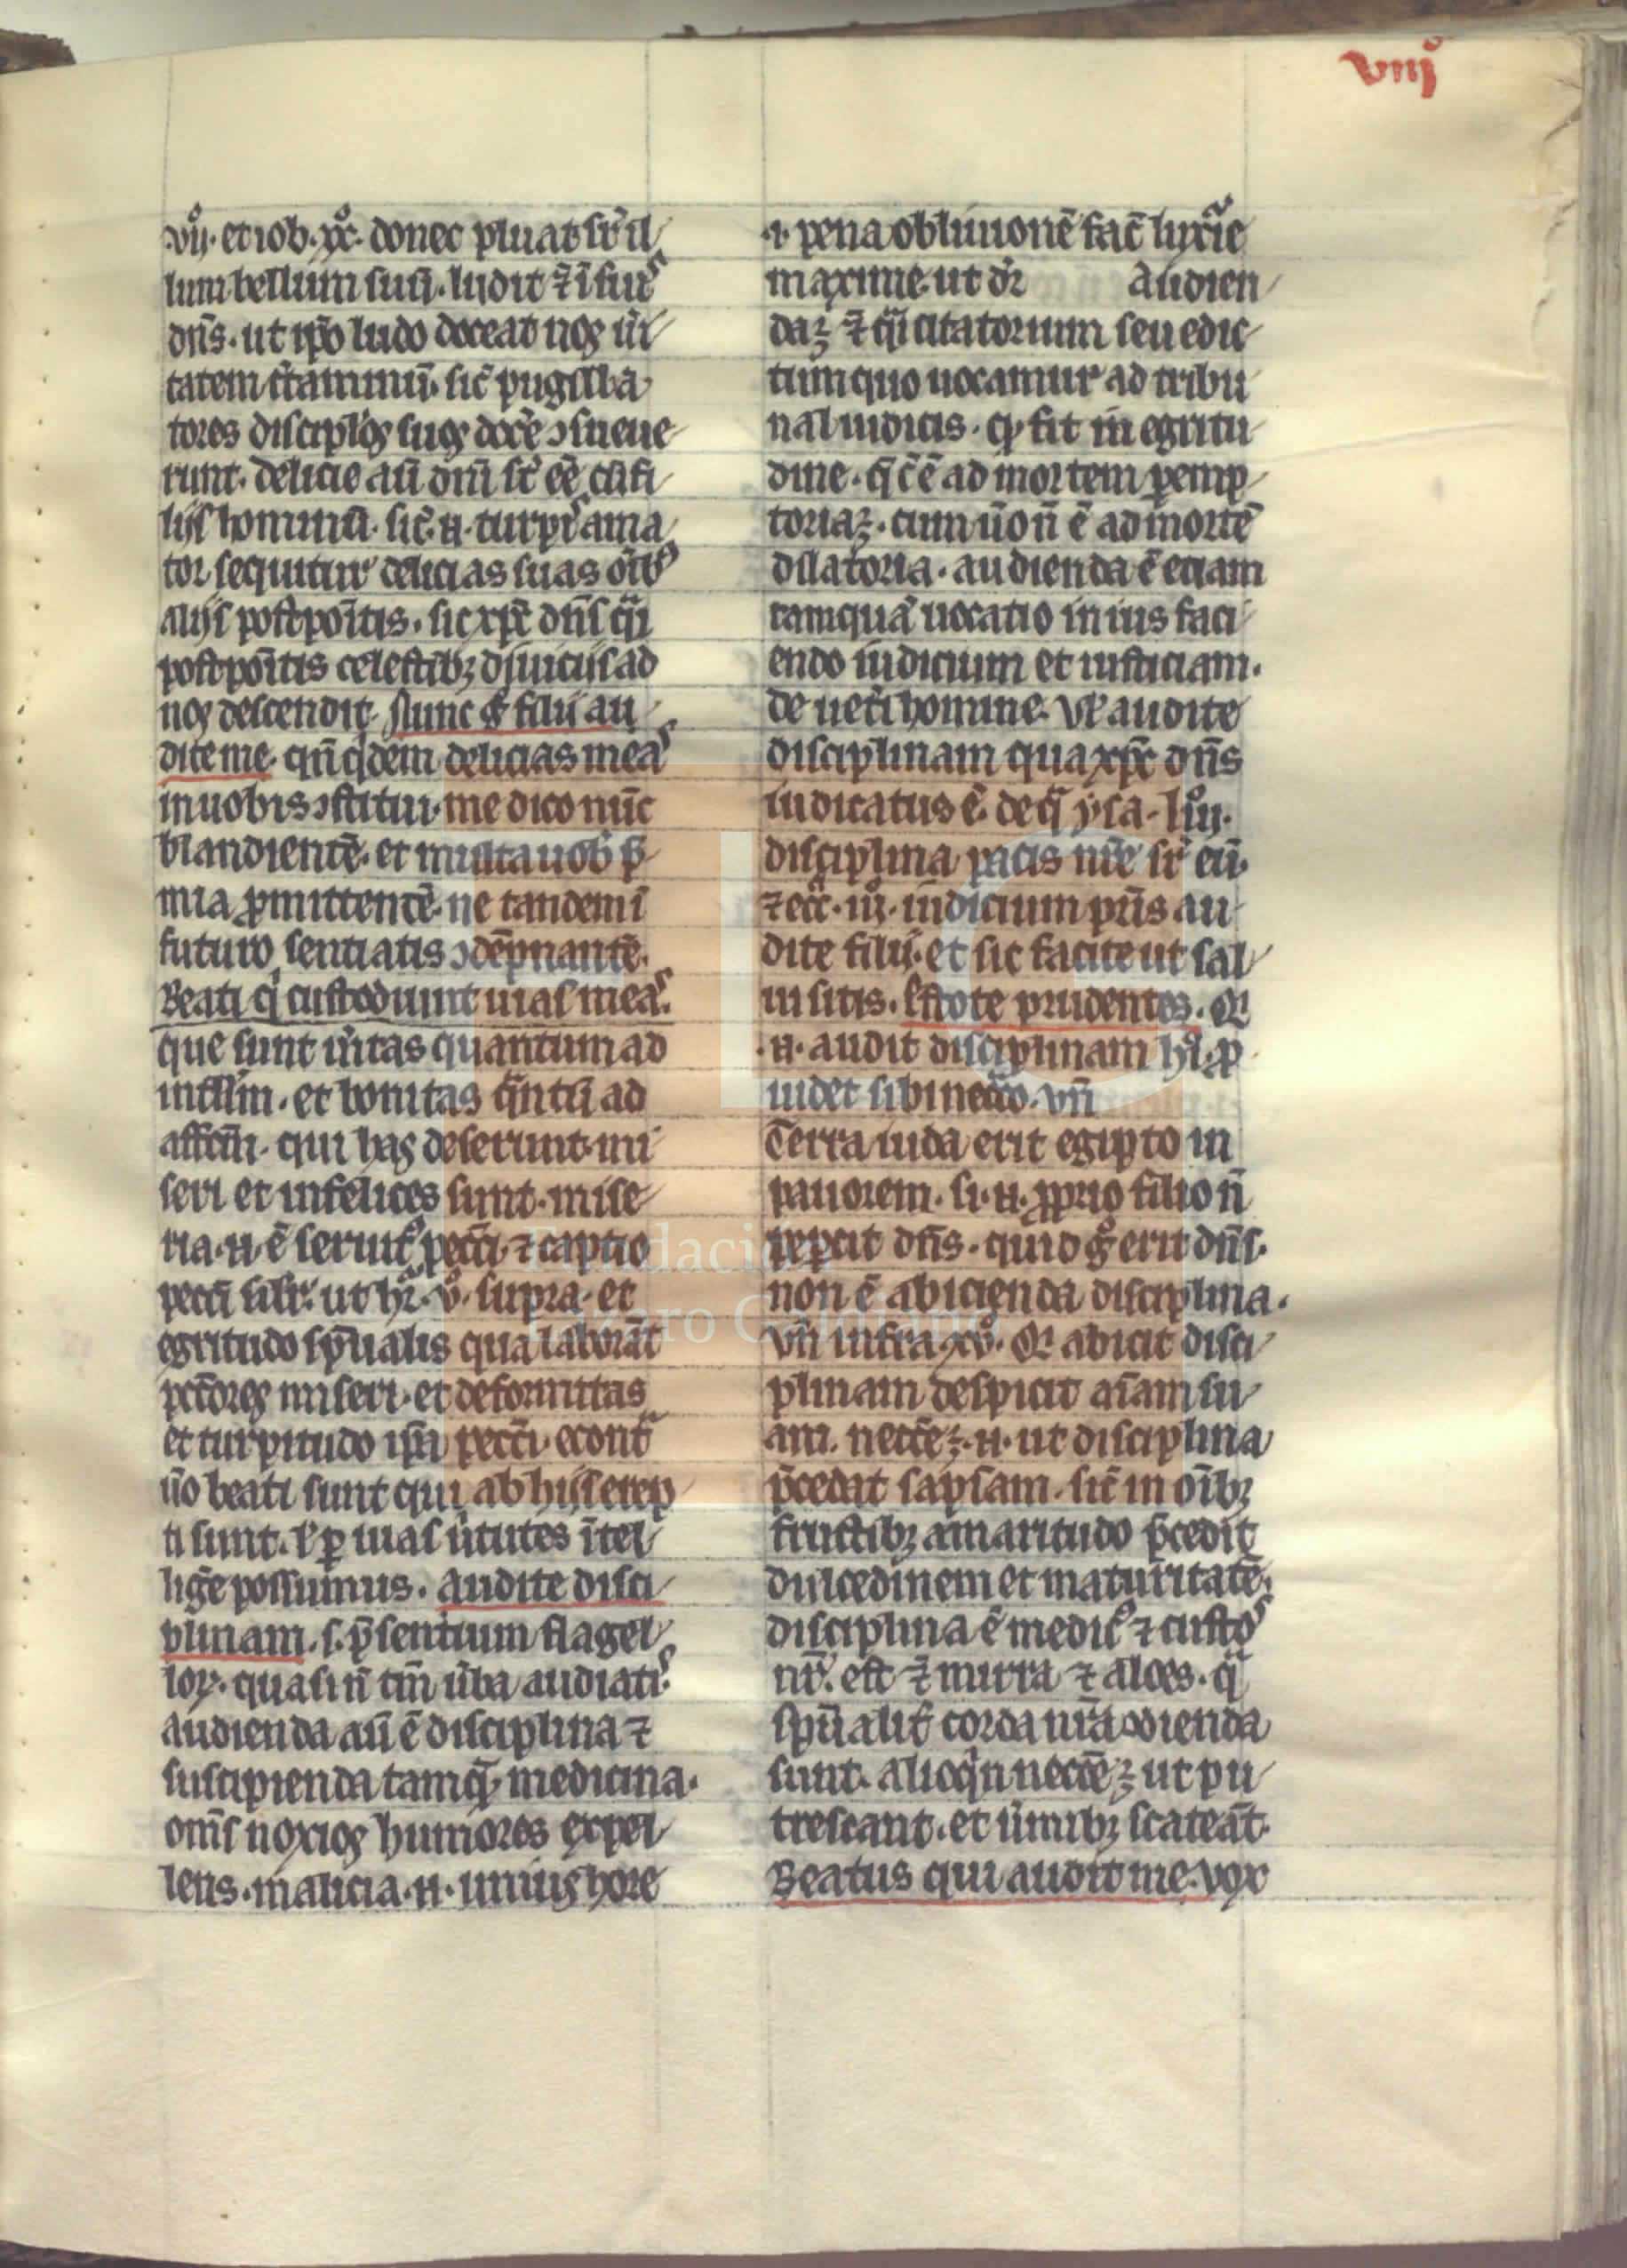 vııjº
.vıj. et iob .xxº. donec pluat sr̄ il
lum bellum suū. ludit ⁊ ī suıs
dn̄s. ut ip̄o ludo doceat nos ui
tatem c̄taminū. sic̄ pugilla
tores discip̄los suos doc̄e ɔsueue
runt. delicie aū dn̄i st̄ eē cū fi
lijs hominū. sic̄ .n. turpis ama
tor sequitur delicias suas oīb
alijs postpoītis. sic xp̄c dn̄s q̄i
postpoītis celestibꝫ diuicijs ad
nos descendit. Nunc g̊ filij au
dite me. qn̄ qͥdem delicias meas
in uobis ɔstitui. me dico nūc
blandientē. et multa uob̄ p̄
mia ꝓmittentē. ne tandem ī
futuro sentiatis ɔdēpnantē.
Beati qͥ custodiunt uias meas.
que sunt ūitas quantum ad
intll̄m. et bonitas qͣntū ad
affc̄m. qui has deserunt. mi
seri et infelices sunt. mise
ria .n. ē seruit᷒ pecc̄i. ⁊ captio
pecc̄i ut hr̄ .vº. supra. et
egritudo sp̄ualis qua laborāt
pctōres miseri. et deformitas
et turpitudo ip̄i pecc̄i. econtͣ
ūo beati sunt qui ab hijs erep
ti sunt. ꝑ uias ūtutes ītel
liḡe possumus. Audite disci
plinam. s. p̄sentium flagel
loꝝ. quasi n̄ tm̄ ūba audiatis.
Audienda aū ē disciplina ⁊
suscipienda tamqͣ medicina.
om̄s noxios humores expel
lens. malicia .n. unius hore
⁊ pena obliuionē fac̄ luxͥie
maxime. ut dr̄ Audien
da ꝫ ⁊ q̄i citatorium seu edic
tum quo uocamur ad tribu
nal iudicis. qͩ fit in egritu
dine. q̄ c̄ ē ad mortem peremp
toria ꝫ. cum ū non ē ad mortē
dilatoria. audienda ē etiam
tamquā uocatio in ius faci
endo iudicium et iusticiam.
de ueti homine. Vl̓ audite
disciplinam qua xp̄c dn̄s
iudicatus ē. de qͣ ysa. lııjº.
disciplina pacis nr̄e sr̄ eū.
⁊ ecc̄. iijº. iudicium pr̄is au
dite filij. et sic facite ut sal
ui sitis. Estote prudentes. Qͥ
.n. audit disciplinam hͨ. ꝓ
uidet sibi necͦ. vn̄
Terra iuda erit egipto in
pauorem. si .n. ꝓprio filio n̄
peꝑcit dn̄s. quid g̊ erit dn̄s.
non ē abicienda disciplina.
Vn̄ infra .xvº. Qͥ abicit disci
plinam despicit aīam su
am. necc̄e ꝫ .n. ut disciplina
p̄cedat sap̄iam. sic̄ in oībꝫ
fructibꝫ amaritudo p̄cedit
dulcedinem et maturitatē.
disciplina ē medic᷒ ⁊ custos
nr̄. est ⁊ mirra ⁊ aloes. qͣ
sp̄ualit̄ corda nr̄a condienda
sunt. alioqͥn necc̄e ꝫ ut pu
trescant. et ūmibꝫ scateāt.
Beatus qui audit me. vox
Fundación
Lázaro Galdiano